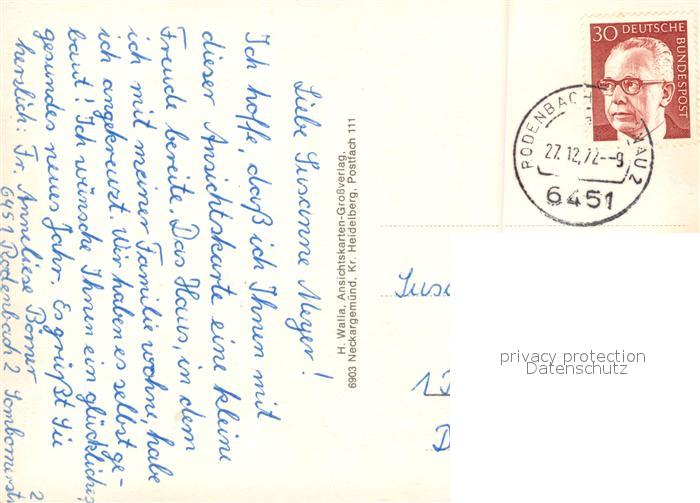 Liebe Susanne Meyer!
Ich hoffe, daß ich Ihnen mit
dieser Ansichtskarte eine kleine
Freude bereite. Das Haus, in dem
ich mit meiner Familie wohne, habe
ich angekreuzt. Wir haben es selbst ge-
baut! Ich wünsche Ihnen ein glückliches,
gesundes neues Jahr. Es grüßt Sie
herzlich: Fr. Anneliese Börner
6451 Rodenbach 2
2
H. Walla, Ansichtskarten-Großverlag,
6903 Neckargemünd, Kr. Heidelberg, Postfach 111
30 DEUTSCHE
BUNDESPOST
RODENBACH NAU 2
27.12.72--9
6451
Susa
1
D
privacy protection
Datenschutz